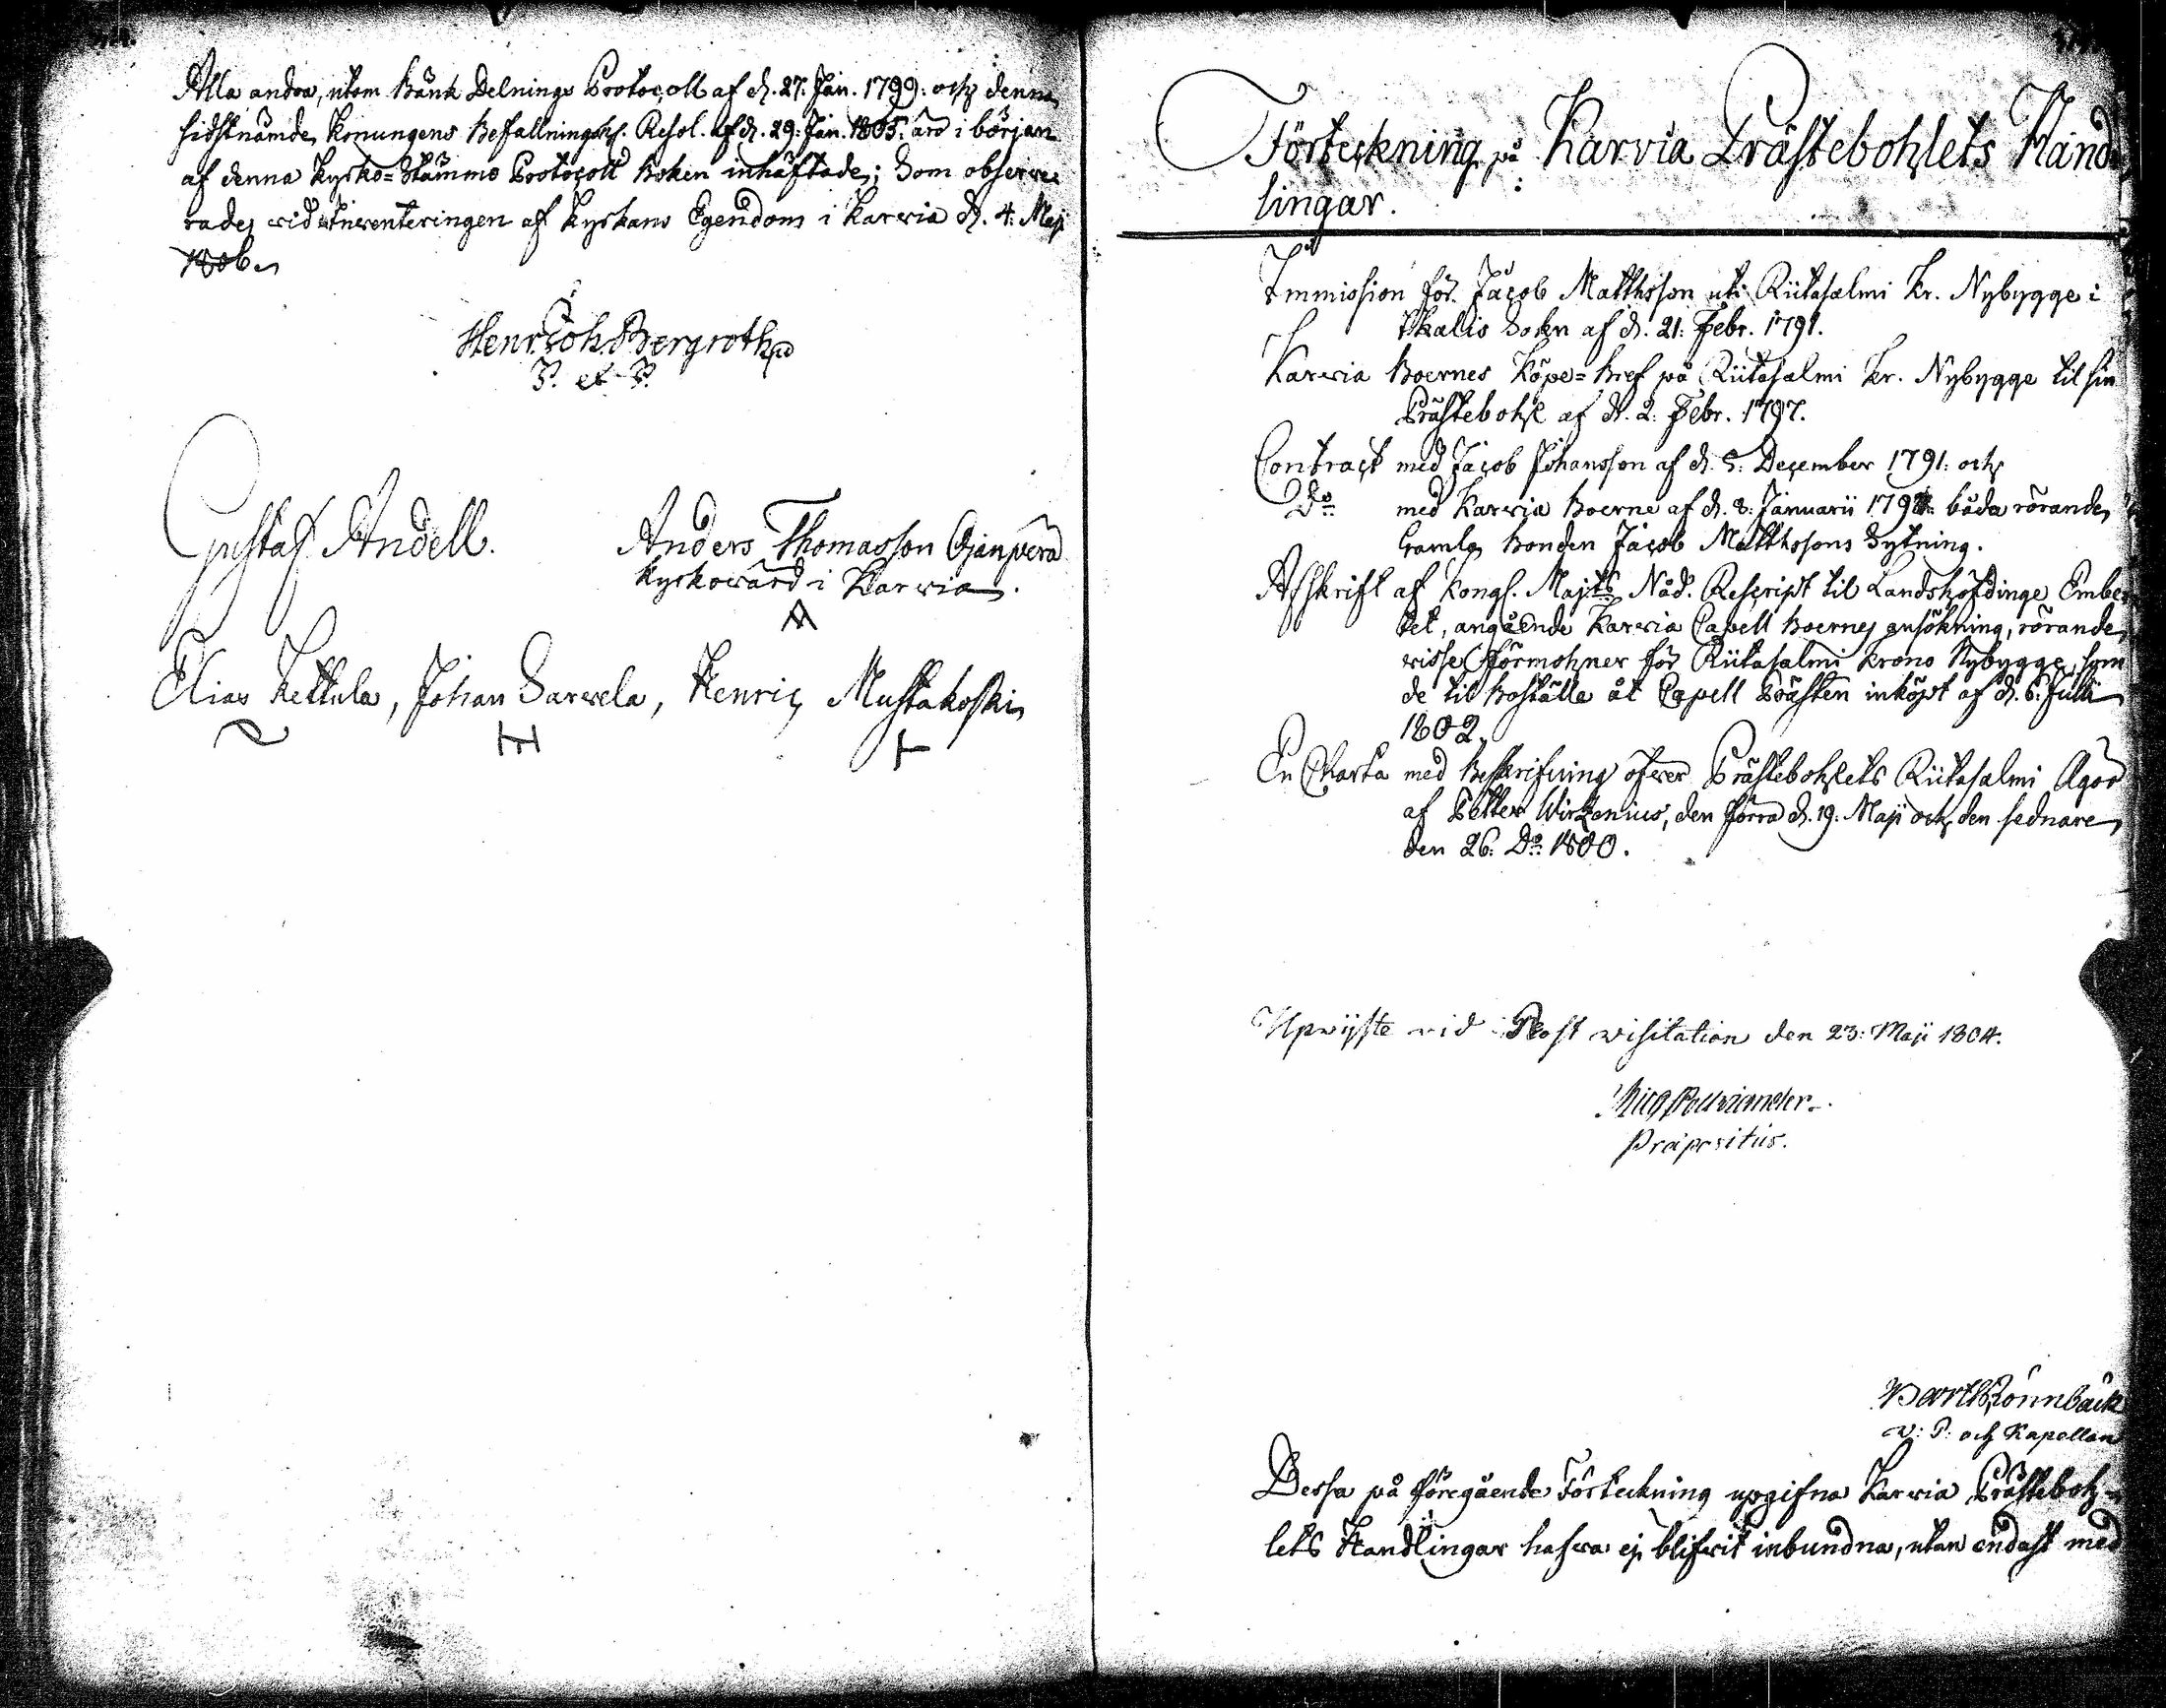 Alla andra, utom Bänk Delnings Protocoll af d. 27. Jan. 1799. och denna
sidstnämde Konungens Befallningsh. Resol. af d. 29. Jan. 1805. äro i början
af denna Kyrko-Stämmo Protocoll Boken inhäftade; Som observe
rades wid Inventeringen af Kyrkans Egendom i Karvia d. 4. Maji
1806.
Henr. Joh. Bergroth
P. et P.
Gustaf Andell.
Anders Thomasson Ojanperä
Kyrkowärd i Karvia.
Elias Kettula, Johan Sarvela, Henric Mustakoski
Förteckning på Karvia Prästebohlets Hand
lingar.
Immission för Jacob Matthsson uti Riitasalmi Kr. Nybygge i
Ikalis Sokn af d. 21. Febr. 1791.
Karvia Boernes Köpe=Bref på Riitasalmi Kr. Nybygge til sin
Prästebohl af d. 2. Febr. 1797.
Contract med Jacob Johansson af d. 5. December 1791. och
Do med Karvia Boerne af d. 8. Januarii båda rörande
Gamla Bonden Jacob Matthssons Sytning.
Afskrift af Kongl. Majts Nåd. Rescript til Landshöfdinge Embe
tet, angående Karvia Capell Boernes ansökning, rörande
visse förmohner för Riitasalmi Krono Nybygge, som
de til Boställe åt Capell Prästen inköpt af d. 6. Julii
1802.
En Charta med Beskrifning öfver Prästebohlets Riitasalmi Ägor
af Petter Wirzenius, den förra d. 19. Maji och den sednare
den 26. Do 1800.
Upwiste vid Prost visitation den 23. Maji 1804.
Præpositus.
Barth Rönnbäck
V: P. och Kapellan
Dessa på föregående Förteckning upgifna Karvia Prästeboh-
lets Handlingar hafva ej blifvit inbundna, utan endast med